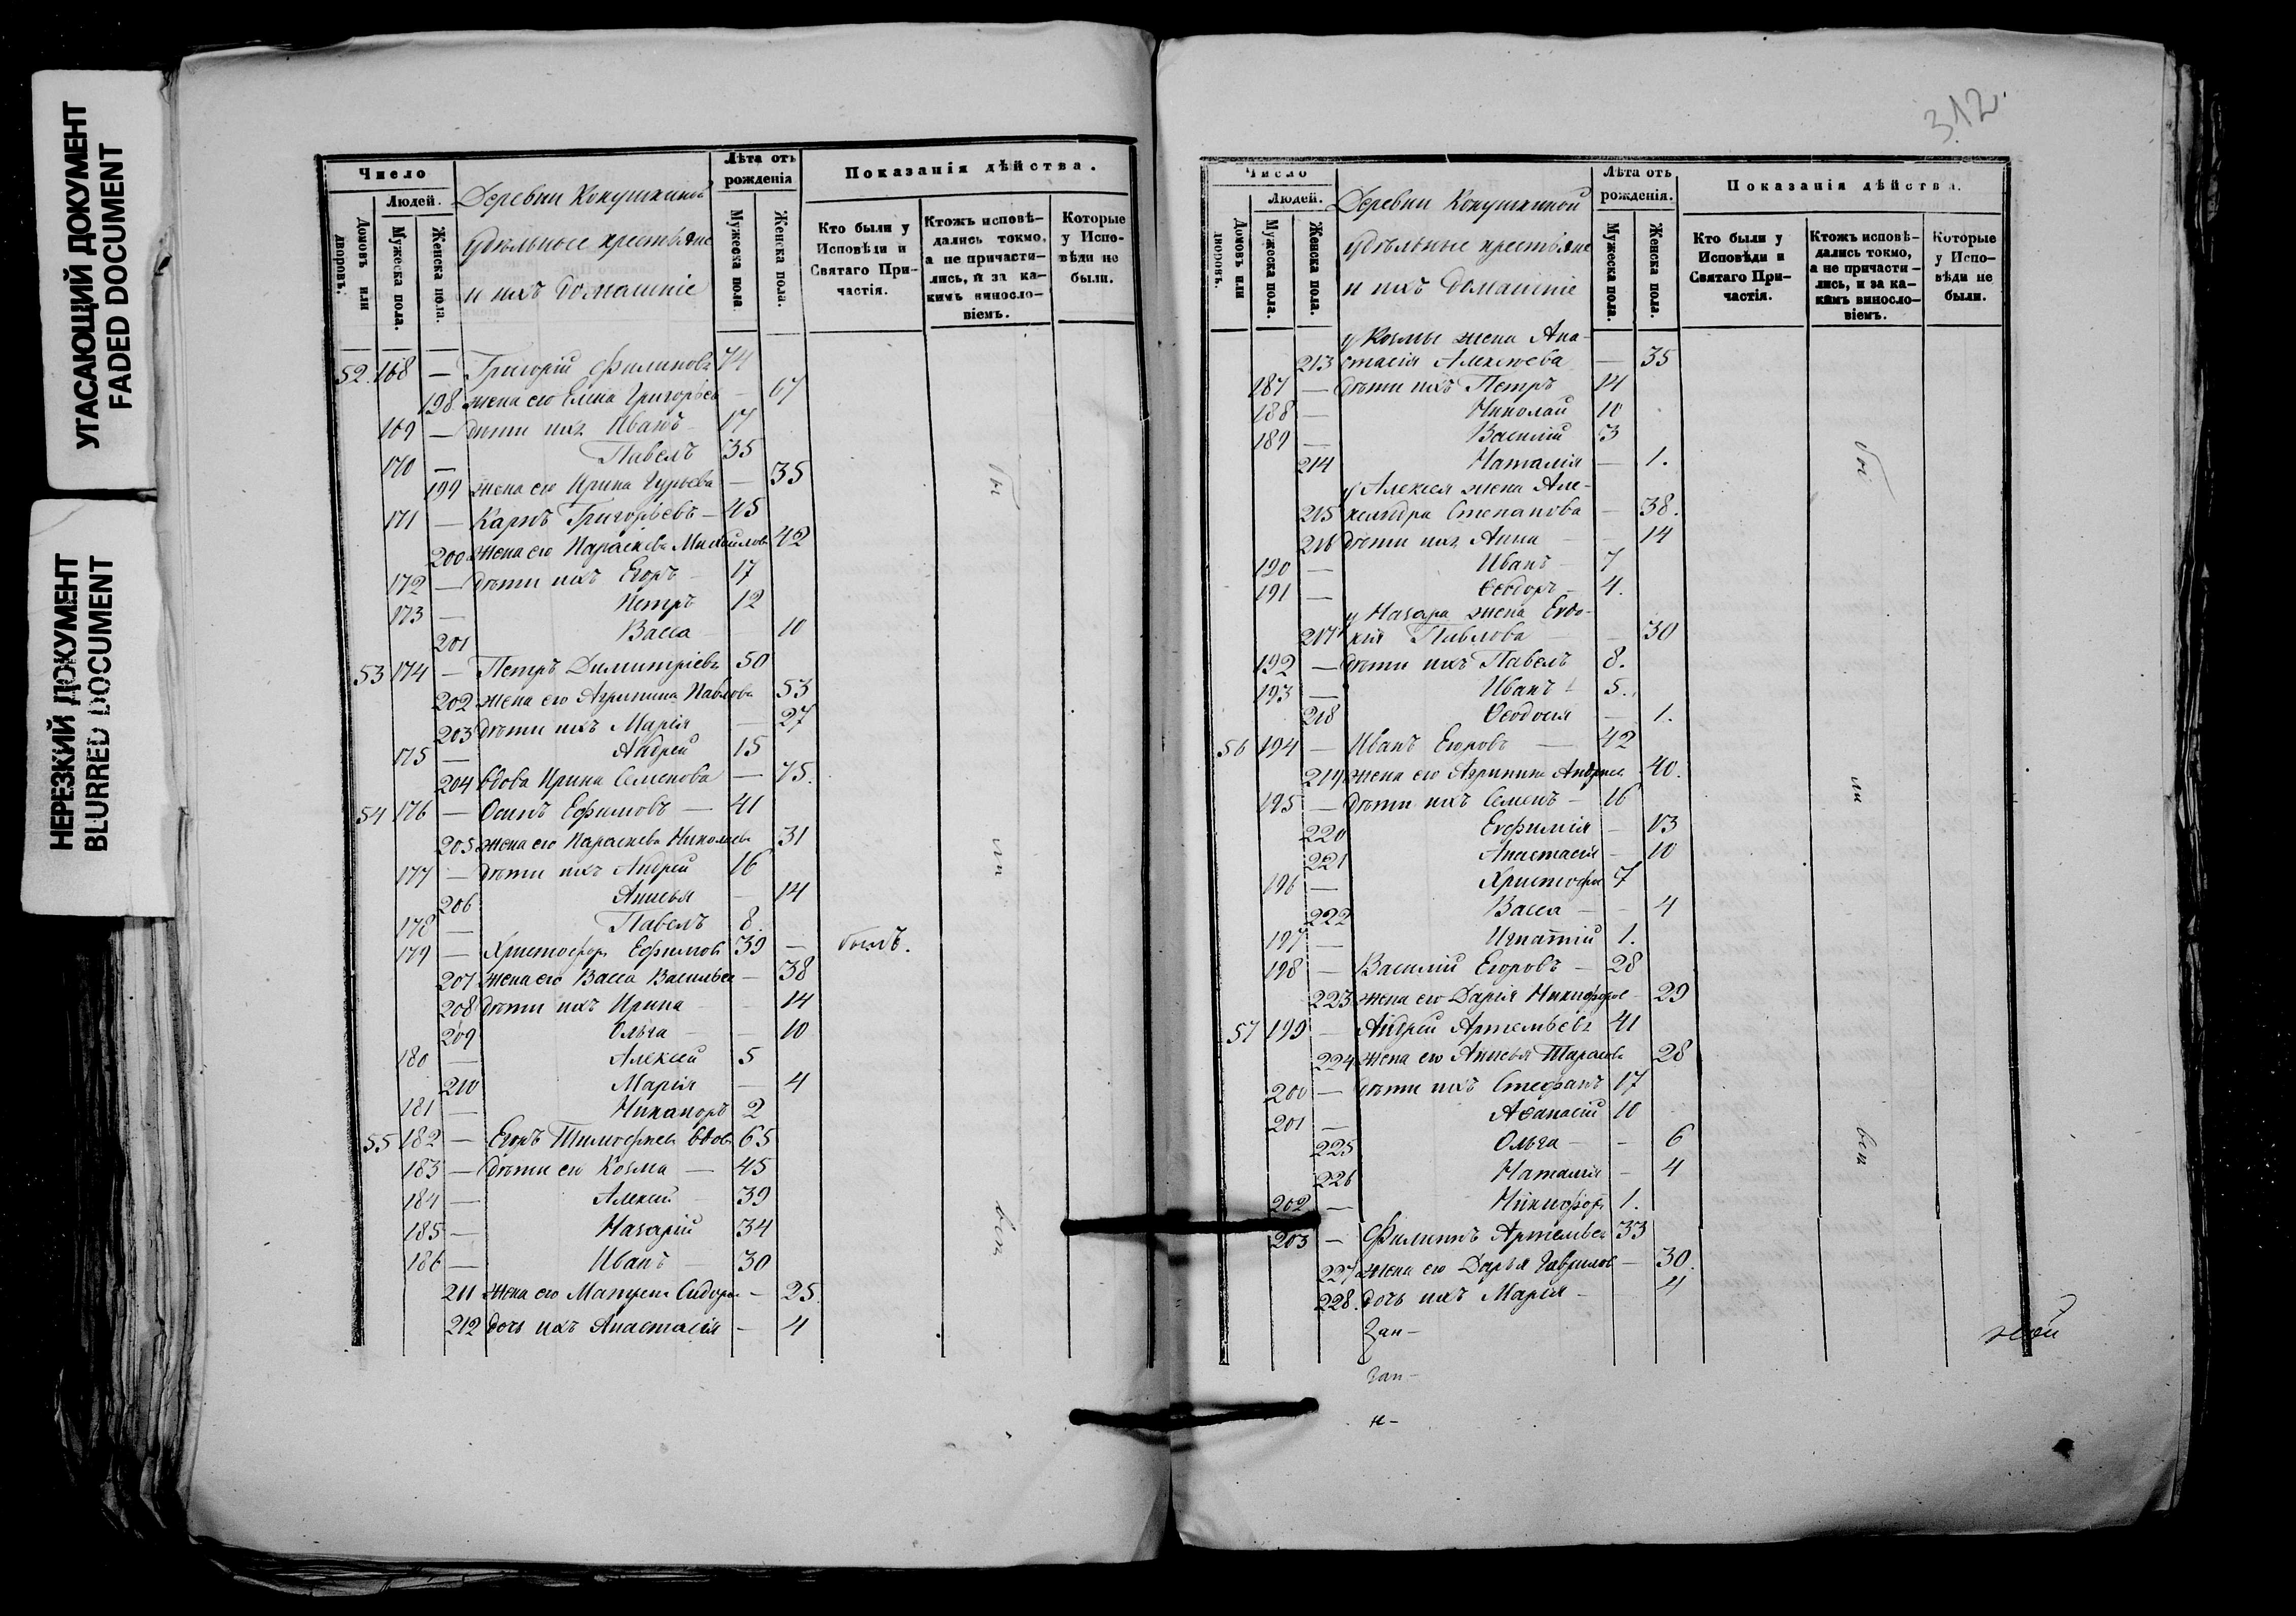 УГАСАЮЩИЙ ДОКУМЕНТ
FADED DOCUMENT
НЕРЕЗКИЙ ДОКУМЕНТ
BLURRED DOCUMENT
Число
Людей.
Домовъ или дворовъ.
Мужеска пола.
Женска пола.
Деревни Конушкиной
удѣльные крестьяне
и ихъ домашніе
Лѣта отъ рожденія
Мужеска пола.
Женска пола.
Показанія дѣйства.
Кто были у Исповѣди и Святаго Причастія.
Ктожъ исповѣдались токмо, а не причастились, и за какимъ винословіемъ.
Которые у Исповѣди не были.
52. 168 — Григорій Филиповъ 74
198 жена его Елена Григорьев — 67
169 — дѣти ихъ Иванъ 17
170 — Павелъ 35
199 жена его Ирина Гурьева — 35
171 — Карпъ Григорьевъ — 45
200 жена его Параскева Михайлова 42
172 — дѣти ихъ Егоръ — 17
173 — Петръ 12
201 Васса — 10
53 174 — Петръ Димитріевъ 50
202 жена его Агрипина Павлова 53
203 дѣти ихъ Марія — 27
175 — Андрей 15
204 вдова Ирина Семенова — 75.
54 176 — Осипъ Ефимовъ — 41
205 жена его Параскева Николаева 31
177 — дѣти ихъ Андрей 16
206 Анисья — 14
178 — Павелъ 8.
179 — Христофоръ Ефимов 39 — былъ.
207 жена его Васса Васильева — 38
208 дѣти ихъ Ирина — 14
209 Ольга — — 10
180 — Алексей 5
210 Марія — 4
181 — Никаноръ 2
55 182 — Егоръ Тимофеев вдов 65
183 — дѣти его Козма — 45
184 — Алексей 39
185 — Назарій 34
186 — Иванъ — 30
211 жена его Сидоров — 25.
212 дочь ихъ Анастасія — 4
бы
ли
вси
312
Число
Людей.
Домовъ или дворовъ.
Мужеска пола.
Женска пола.
Деревни Конушкиной
удѣльные крестьяне
и ихъ домашніе
Лѣта отъ рожденія.
Мужеска пола.
Женска пола.
Показанія дѣйства.
Кто были у Исповѣди и Святаго Причастія.
Ктожъ исповѣдались токмо, а не причастились, и за какимъ винословіемъ.
Которые у Исповѣди не были.
у Козмы жена Ана-
213 стасія Алексеева — 35
187 — дѣти ихъ Петръ 14
188 — Николай 10
189 — Василій 3
214 Наталія — 1.
у Алексея жена Але-
215 ксандра Степанова — 38.
216 дѣти ихъ Анна — — 14
190 — Иванъ — 7
191 — Ѳеодоръ — 4.
у Назара жена Евдо-
217 кія Павлова — — 30
192 — дѣти ихъ Павелъ 8.
193 — Иванъ — 5.
218 Ѳеодосія — 1.
56 194 — Иванъ Егоровъ — 42
219 жена его Агрипина Андреев 40.
195 — дѣти ихъ Семенъ — 16
220 Евфимія — 13
221 Анастасія — 10
196 — Христофор 7
222 Васса — — 4
197 — Игнатій 1.
198 — Василій Егоровъ — 28
223 жена его Дарія Никифоров — 29
57 199 — Андрей Артемьевъ 41
224 жена его Анисья Тарасова 28
200 — дѣти ихъ Стефанъ 17
201 — Аѳанасій 10
225 Ольга — — 6
226 Наталія — 4
202 — Никифоръ 1.
203 — Филипъ Артемьев 33
227 жена его Дарья Гаврилов — 30.
228. дочь ихъ Марія — 4
бы
ли
вси